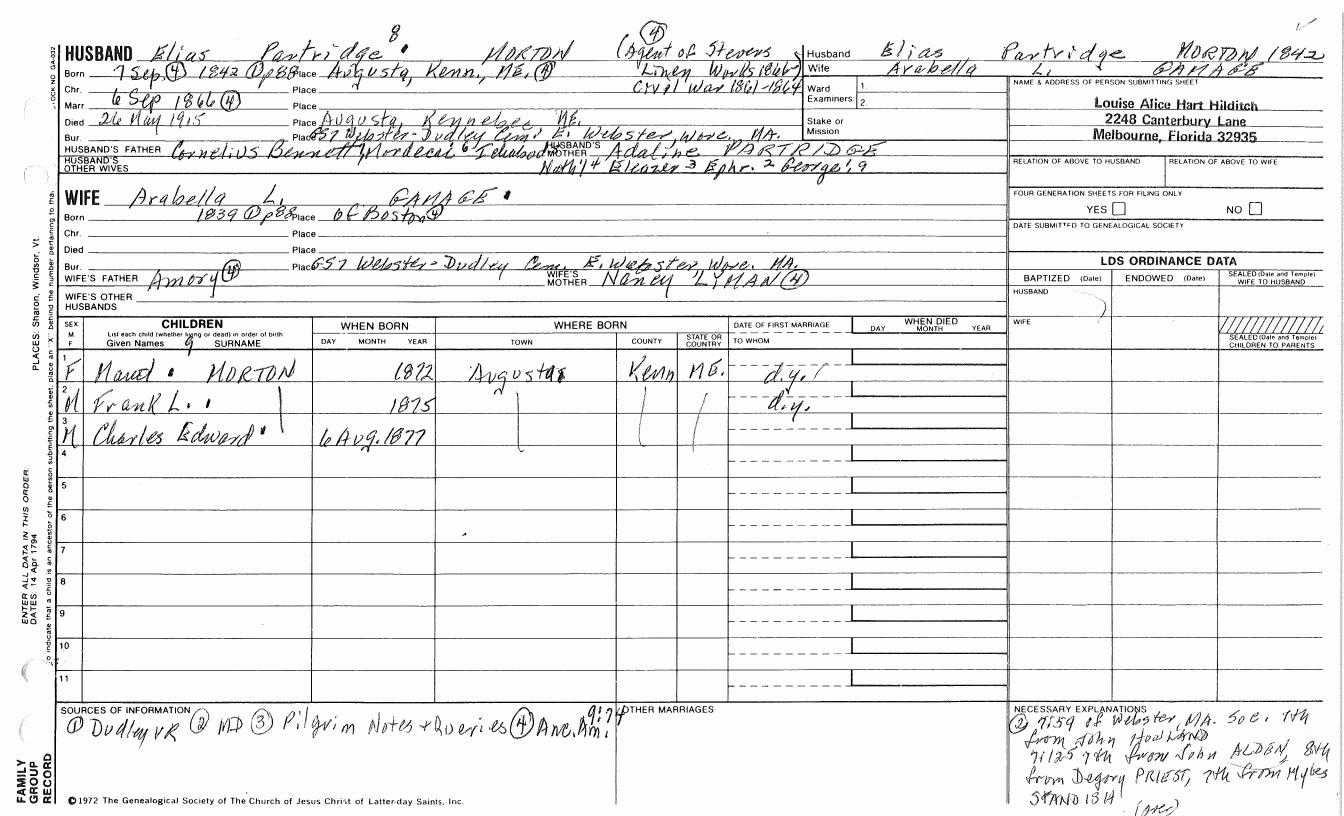 8
HUSBAND Elias Partridge MORTON (Agent of Stevens
④
Born 7 Sep. ④ 1842 ① p88 Place Augusta, Kenn., ME. ④ Linen Works 1866
Chr. Place Civil War 1861-1864
Marr 6 Sep 1866 ④ Place
Died 26 May 1915 Place Augusta, Kennebec ME.
Bur. Place G57 Webster-Dudley Cem. E. Webster, Worc, MA.
HUSBAND'S FATHER Cornelius Bennett Mordecai 6 Ichabod HUSBAND'S MOTHER Adaline PARTRIDGE
HUSBAND'S OTHER WIVES Nath'l 4 Eleazer 3 Ephr. 2 George 1, 9
Husband Elias Partridge MORTON 1842
Wife Arabella L. GAMAGE
Ward 1
Examiners: 2
Stake or
Mission
NAME & ADDRESS OF PERSON SUBMITTING SHEET
Louise Alice Hart Hilditch
2248 Canterbury Lane
Melbourne, Florida 32935
RELATION OF ABOVE TO HUSBAND RELATION OF ABOVE TO WIFE
FOUR GENERATION SHEETS FOR FILING ONLY
YES NO
DATE SUBMITTED TO GENEALOGICAL SOCIETY
WIFE Arabella L. GAMAGE
Born 1839 ① p88 Place of Boston ④
Chr. Place
Died Place
Bur. Place G57 Webster-Dudley Cem. E. Webster, Worc. MA.
WIFE'S FATHER Amory ④ WIFE'S MOTHER Nancy LYMAN ④
WIFE'S OTHER HUSBANDS
LDS ORDINANCE DATA
BAPTIZED (Date) ENDOWED (Date) SEALED (Date and Temple) WIFE TO HUSBAND
HUSBAND
WIFE
SEALED (Date and Temple) CHILDREN TO PARENTS
SEX M F CHILDREN WHEN BORN WHERE BORN DATE OF FIRST MARRIAGE WHEN DIED
List each child (whether living or dead) in order of birth
Given Names 9 SURNAME DAY MONTH YEAR TOWN COUNTY STATE OR COUNTRY TO WHOM DAY MONTH YEAR
1 F MORTON 1872 Augusta Kenn ME. d.y.
2 M Frank L. 1875 d.y.
3 M Charles Edward 6 Aug. 1877
4
5
6
7
8
9
10
11
SOURCES OF INFORMATION
① Dudley VR ② MD ③ Pilgrim Notes + Queries ④ Anc. Am. 9:74
OTHER MARRIAGES
NECESSARY EXPLANATIONS
② 7:59 of Webster, MA. Soc. 7th
from John HOWLAND
7:125 7th from John ALDEN, 8th
from Degory PRIEST, 7th from Myles
STANDISH
(over)
©1972 The Genealogical Society of The Church of Jesus Christ of Latter-day Saints, Inc.
PLACES: Sharon, Windsor, Vt.
ENTER ALL DATA IN THIS ORDER
DATES: 14 Apr 1794
To indicate that a child is an ancestor of the person submitting the sheet, place an "X" behind the number pertaining to that
FAMILY
GROUP
RECORD